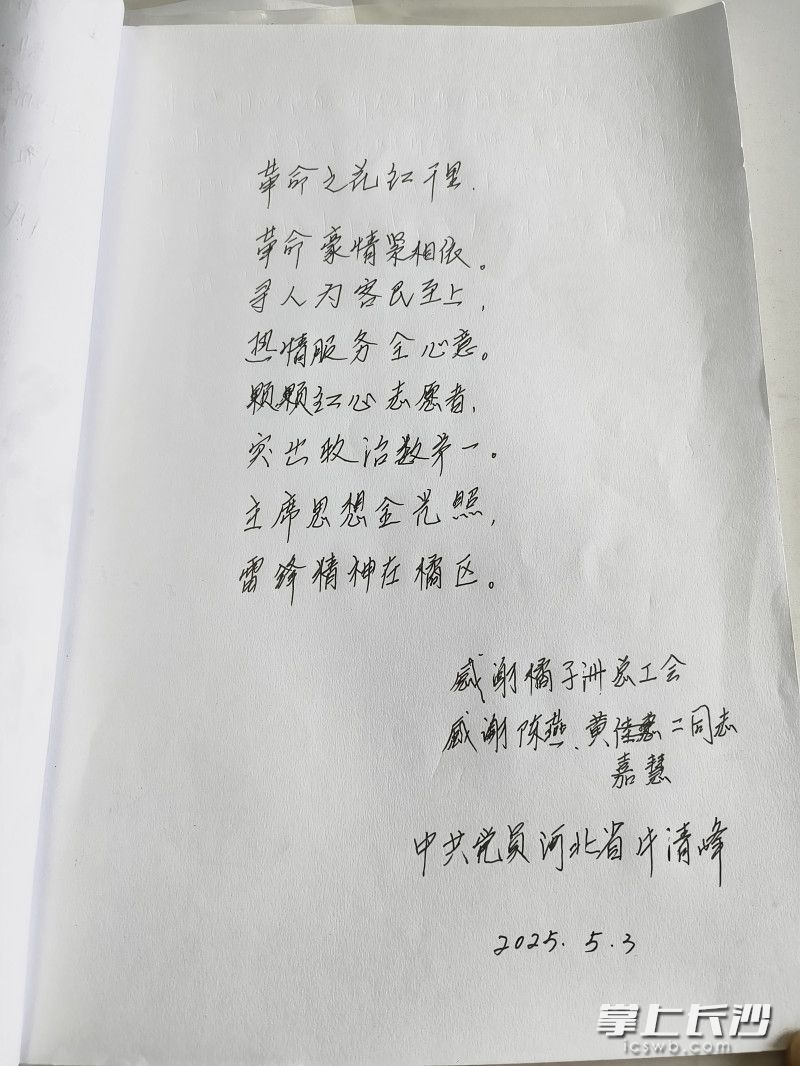 革命之花红千里.
革命豪情紧相依。
寻人为客民至上,
热情服务全心意。
颗颗红心志愿者,
突出政治数第一。
主席思想金光照,
雷锋精神在橘区。
感谢橘子洲总工会
感谢陈燕、黄佳惠二同志
嘉慧
中共党员河北省牛清峰
2025.5.3
掌上长沙
icswb.com